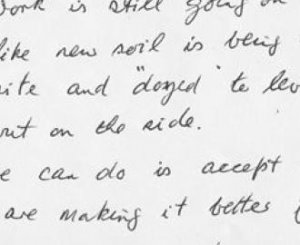 work is still going on
like new soil is being
ite and "dozed" to lev
out on the side.
e can do is accept
are making it better